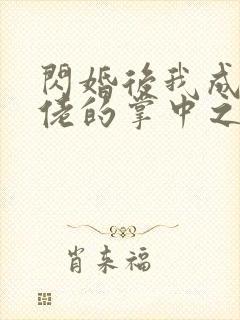 閃婚後我成
佬的掌中之
肖来福